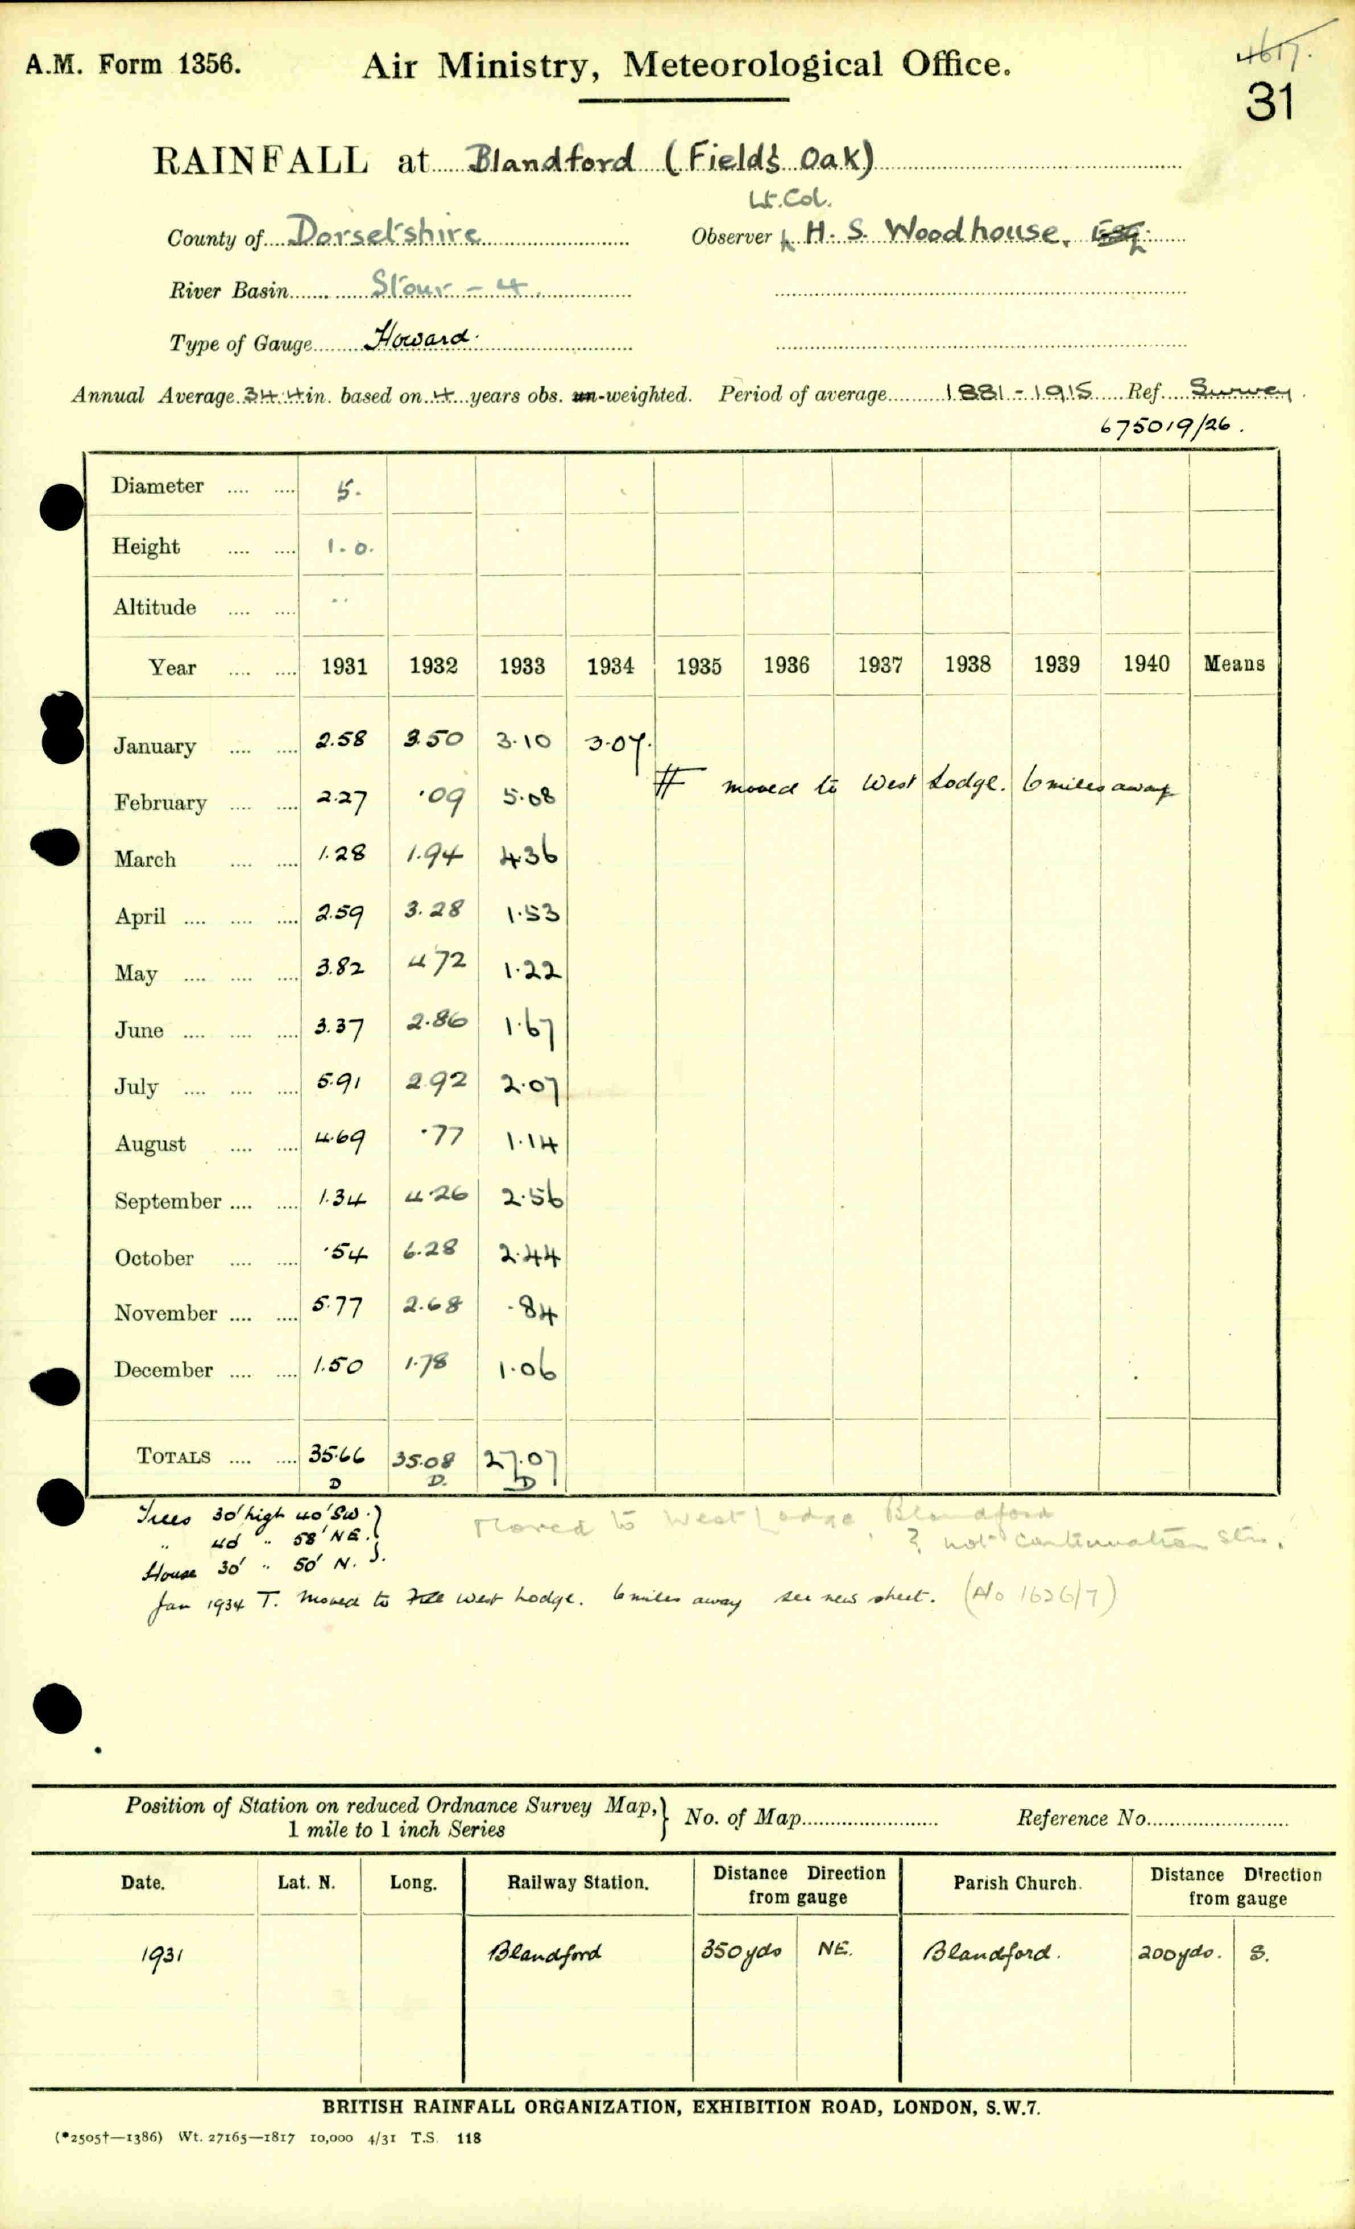 4617.
A.M. Form 1356. Air Ministry, Meteorological Office. 31
RAINFALL at Blandford (Field's Oak)
Lt. Col.
County of Dorsetshire Observer H. S. Woodhouse, Esq.
River Basin Stour - 4.
Type of Gauge Howard.
Annual Average 34.4 in. based on 4 years obs. un-weighted. Period of average 1881-1915 Ref. Survey
675019/26.
Diameter .... .... 5.
Height .... .... 1.0.
Altitude .... .... ..
Year .... .... 1931 1932 1933 1934 1935 1936 1937 1938 1939 1940 Means
January .... .... 2.58 3.50 3.10 3.07.
moved to West Lodge. 6 miles away
February .... .... 2.27 .09 5.08
March .... .... 1.28 1.94 4.36
April .... .... .... 2.59 3.28 1.53
May .... .... .... 3.82 4.72 1.22
June .... .... .... 3.37 2.86 1.67
July .... .... .... 5.91 2.92 2.07
August .... .... 4.69 .77 1.14
September .... .... 1.34 4.26 2.56
October .... .... .54 6.28 2.44
November .... .... 5.77 2.68 .84
December .... .... 1.50 1.78 1.06
TOTALS .... .... 35.66 35.08 27.07
D D. D
Trees 30' high 40' SW.
" 40 " 58' NE.
House 30' " 50' N.
Moved to West Lodge, Blandford
? not continuation stn.
Jan 1934 T. Moved to West Lodge. 6 miles away see new sheet. (No 1626/7)
Position of Station on reduced Ordnance Survey Map, 1 mile to 1 inch Series } No. of Map Reference No.
Date. Lat. N. Long. Railway Station. Distance Direction from gauge Parish Church. Distance Direction from gauge
1931 Blandford 350 yds NE. Blandford. 200 yds. S.
BRITISH RAINFALL ORGANIZATION, EXHIBITION ROAD, LONDON, S.W.7.
(*2505†—1386) Wt. 27165—1817 10,000 4/31 T.S. 118